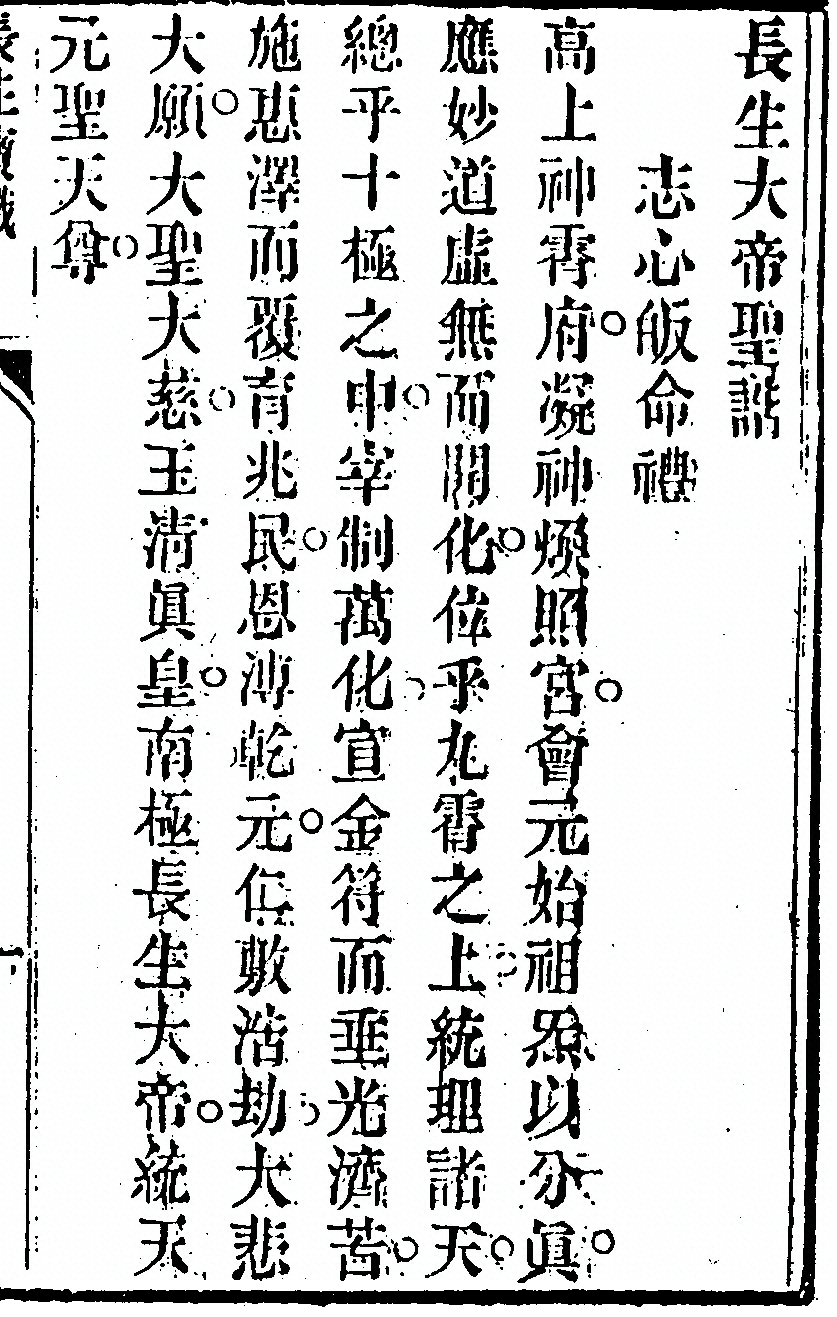 長生大帝聖誥
志心皈命禮
高上神霄府。凝神煥照宮。會元始祖炁以分真。
應妙道虛無而開化。位乎九霄之上。統理諸天。
總乎十極之中。宰制萬化。宣金符而垂光濟苦。
施惠澤而覆育兆民。恩溥乾元。仁敷浩劫。大悲
大願。大聖大慈。玉清眞皇。南極長生大帝。統天
元聖天尊。